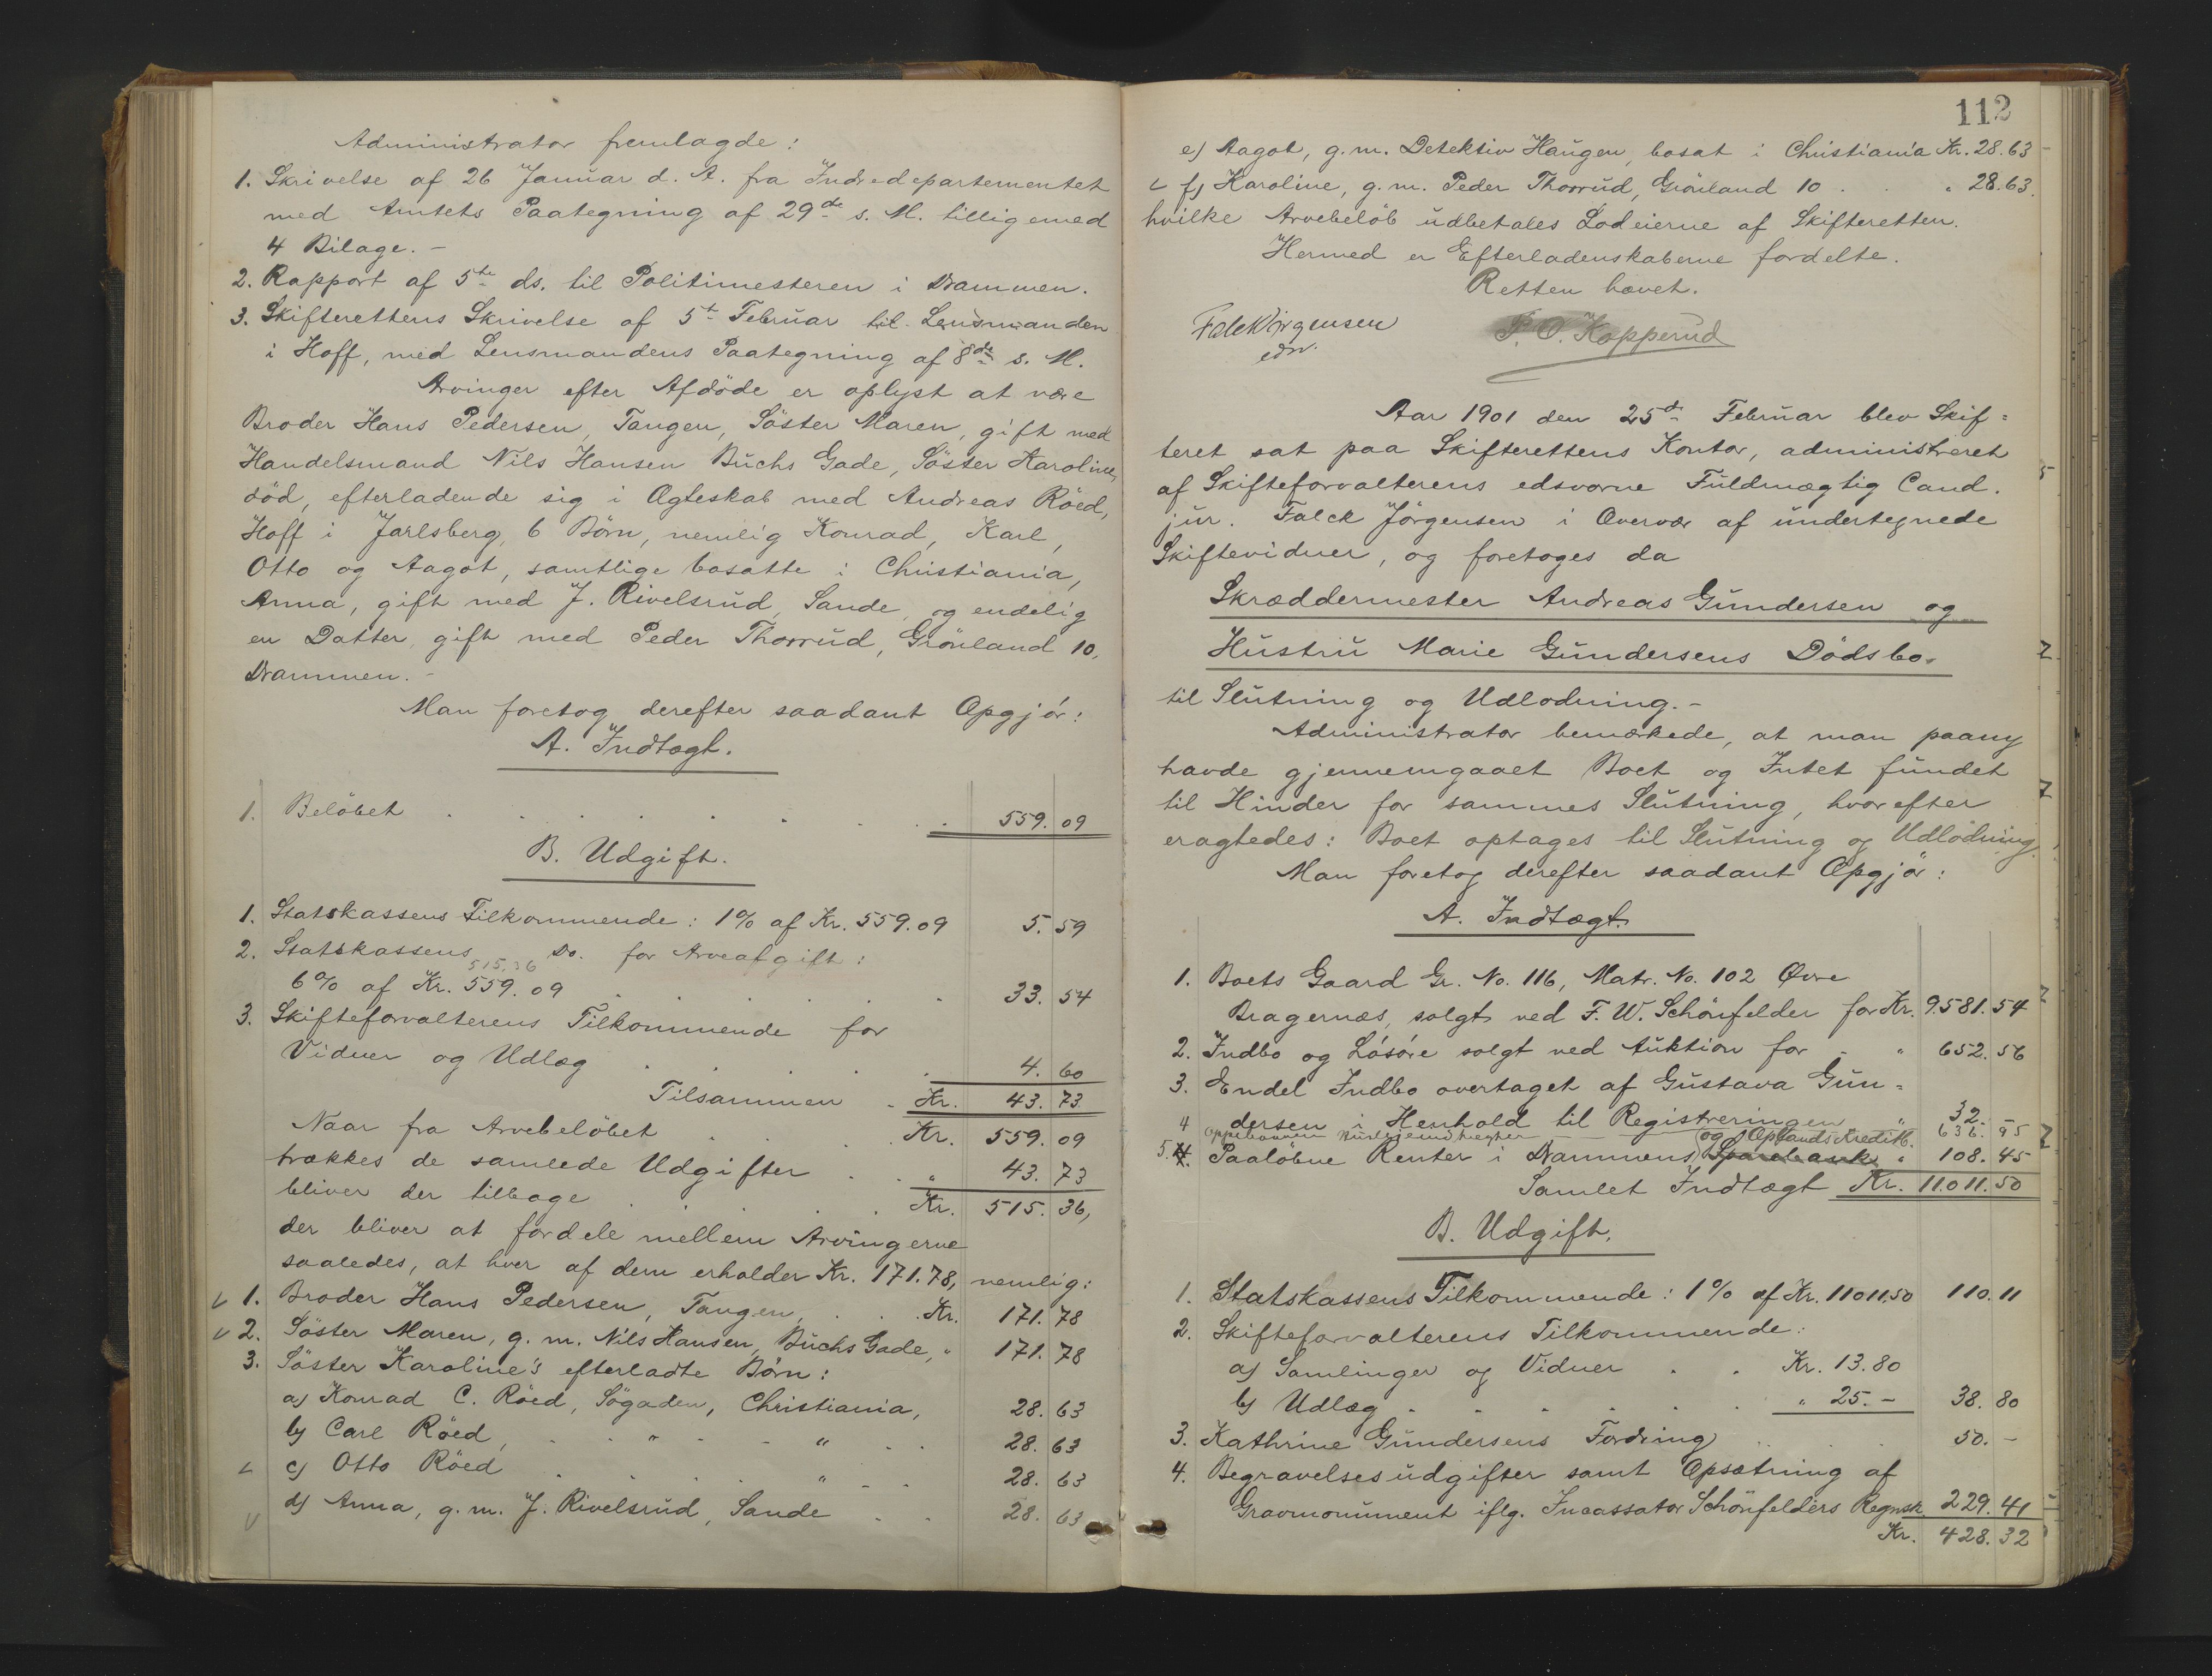 Administrator fremlagde:
1. Skrivelse af 26 Januar d. A. fra Indredepartementet
med Amtets Paategning af 29de s. M. tilligemed
4 Bilage. -
2. Rapport af 5te ds. til Politimesteren i Drammen.
3. Skifterettens Skrivelse af 5te Februar til Lensmanden
i Hoff, med Lensmandens Paategning af 8de s. M.
Arvinger efter Afdöde er oplyst at være
Broder Hans Pedersen, Tangen, Söster Maren, gift med
Handelsmand Nils Hansen Buchs Gade, Söster Karoline,
död, efterladende sig i Ægteskab med Andreas Röed,
Hoff i Jarlsberg, 6 Börn, nemlig Konrad, Karl,
Otto og Aagot, samtlige bosatte i Christiania,
Anna, gift med J. Rivelsrud, Sande, og endelig
en Datter, gift med Peder Thorrud, Grönland 10,
Drammen. -
Man foretog derefter saadant Opgjör:
A. Indtægt.
1. Belöbet 559. 09
B. Udgift.
1. Statskassens Tilkommende: 1% af Kr. 559.09 5. 59
2. Statskassens Do. for Arveafgift:
515.36
6% af Kr. 559.09 33. 54
3. Skifteforvalterens Tilkommende for
Vidner og Udlæg 4. 60
Tilsammen Kr. 43. 73
Naar fra Arvebelöbet Kr. 559. 09
trækkes de samlede Udgifter " 43. 73
bliver der tilbage Kr. 515. 36,
der bliver at fordele mellem Arvingerne
saaledes, at hver af dem erholder Kr. 171.78, nemlig:
1. Broder Hans Pedersen, Tangen, Kr. 171. 78
2. Söster Maren, g. m. Nils Hansen, Buchs Gade, " 171. 78
3. Söster Karoline's efterladte Börn:
a) Konrad C. Röed, Sögaden, Christiania, 28. 63
b) Carl Röed, " " 28. 63
c) Otto Röed " 28. 63
d) Anna, g. m. J. Rivelsrud, Sande 28. 63
112
e) Aagot, g. m. Detektiv Haugen, bosat i Christiania Kr. 28.63
f) Karoline, g. m. Peder Thorrud, Grönland 10 " 28.63.
hvilke Arvebelöb udbetales Lodeierne af Skifteretten.
Hermed er Efterladenskaberne fordelte.
Retten hævet.
Falck Jörgensen P. O. Kopperud
edsv.
Aar 1901 den 25de Februar blev Skif=
teret sat paa Skifterettens Kontor, administreret
af Skifteforvalterens edsvorne Fuldmægtig Cand.
jur. Falck Jörgensen i Overvær af undertegnede
Skiftevidner, og foretoges da
Skræddermester Andreas Gundersen og
Hustru Marie Gundersens Dödsbo
til Slutning og Udlodning. -
Administrator bemærkede, at man paany
havde gjennemgaaet Boet og Intet fundet
til Hinder for sammes Slutning, hvorefter
eragtedes: Boet optages til Slutning og Udlodning.
Man foretog derefter saadant Opgjör:
A. Indtægt.
1. Boets Gaard Gr. No. 116, Matr. No. 102 Øvre
Bragernæs, solgt ved F. W. Schönfelder for Kr. 9.581. 54
2. Indbo og Lösöre solgt ved Auktion for " 652. 56
3. Endel Indbo overtaget af Gustava Gun=
dersen i Henhold til Registreringen " 32. -
4 Oppebaaren Husleieindtægter 636. 95
5. 4. Paalöbne Renter i Drammens og Oplands Kreditb. Sparebank " 108. 45
Samlet Indtægt Kr. 11.011. 50
B. Udgift.
1. Statskassens Tilkommende: 1% af Kr. 11011.50 110. 11
2. Skifteforvalterens Tilkommende:
a) Samlinger og Vidner Kr. 13.80
b) Udlæg " 25. - 38. 80
3. Kathrine Gundersens Fordring 50. -
4. Begravelsesudgifter samt Opsætning af
Gravmonument iflg. Incassator Schönfelders Regnsk. 229. 41
Kr. 428. 32